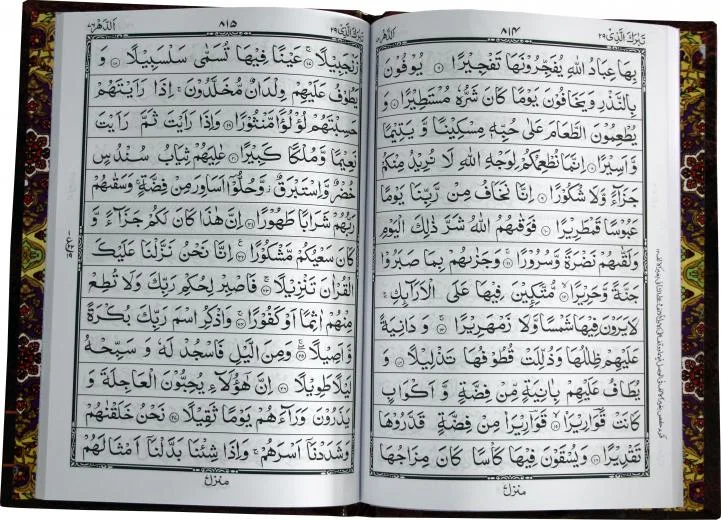 تبرك الذى ٢٩
٨١٤
الدهر ٧٦
بِهَا عِبَادُ اللهِ يُفَجِّرُوْنَهَا تَفْجِيْرًا ۶ يُوْفُوْنَ
بِالنَّذْرِ وَيَخَافُوْنَ يَوْمًا كَانَ شَرُّهٗ مُسْتَطِيْرًا ۷ وَ
يُطْعِمُوْنَ الطَّعَامَ عَلٰى حُبِّهٖ مِسْكِيْنًا وَّ يَتِيْمًا
وَّ اَسِيْرًا ۸ اِنَّمَا نُطْعِمُكُمْ لِوَجْهِ اللهِ لَا نُرِيْدُ مِنْكُمْ
جَزَآءً وَّلَا شُكُوْرًا ۹ اِنَّا نَخَافُ مِنْ رَّبِّنَا يَوْمًا
عَبُوْسًا قَمْطَرِيْرًا ۱۰ فَوَقٰهُمُ اللهُ شَرَّ ذٰلِكَ الْيَوْمِ
وَلَقّٰهُمْ نَضْرَةً وَّسُرُوْرًا ۱۱ وَجَزٰىهُمْ بِمَا صَبَرُوْا
جَنَّةً وَّحَرِيْرًا ۱۲ مُّتَّكِـِٕيْنَ فِيْهَا عَلَى الْاَرَآىِٕكِ
لَا يَرَوْنَ فِيْهَا شَمْسًا وَّلَا زَمْهَرِيْرًا ۱۳ وَ دَانِيَةً
عَلَيْهِمْ ظِلٰلُهَا وَذُلِّلَتْ قُطُوْفُهَا تَذْلِيْلًا ۱۴ وَ
يُطَافُ عَلَيْهِمْ بِاٰنِيَةٍ مِّنْ فِضَّةٍ وَّ اَكْوَابٍ
كَانَتْ قَوَارِيْرَا۠ ۱۵ قَوَارِيْرَا۠ مِنْ فِضَّةٍ قَدَّرُوْهَا
تَقْدِيْرًا ۱۶ وَيُسْقَوْنَ فِيْهَا كَاْسًا كَانَ مِزَاجُهَا
منزل ٧
تبرك الذى ٢٩
٨١٥
الدهر ٧٦
زَنْجَبِيْلًا ۱۷ عَيْنًا فِيْهَا تُسَمّٰى سَلْسَبِيْلًا ۱۸ وَ
يَطُوْفُ عَلَيْهِمْ وِلْدَانٌ مُّخَلَّدُوْنَ اِذَا رَاَيْتَهُمْ
حَسِبْتَهُمْ لُؤْلُؤًا مَّنْثُوْرًا ۱۹ وَاِذَا رَاَيْتَ ثَمَّ رَاَيْتَ
نَعِيْمًا وَّمُلْكًا كَبِيْرًا ۲۰ عٰلِيَهُمْ ثِيَابُ سُنْدُسٍ
خُضْرٌ وَّاِسْتَبْرَقٌ وَّحُلُّوْٓا اَسَاوِرَ مِنْ فِضَّةٍ وَسَقٰىهُمْ
رَبُّهُمْ شَرَابًا طَهُوْرًا ۲۱ اِنَّ هٰذَا كَانَ لَكُمْ جَزَآءً وَّ
كَانَ سَعْيُكُمْ مَّشْكُوْرًا ۲۲ اِنَّا نَحْنُ نَزَّلْنَا عَلَيْكَ
الْقُرْاٰنَ تَنْزِيْلًا ۲۳ فَاصْبِرْ لِحُكْمِ رَبِّكَ وَلَا تُطِعْ
مِنْهُمْ اٰثِمًا اَوْ كَفُوْرًا ۲۴ وَاذْكُرِ اسْمَ رَبِّكَ بُكْرَةً
وَّ اَصِيْلًا ۲۵ وَمِنَ الَّيْلِ فَاسْجُدْ لَهٗ وَ سَبِّحْهُ
لَيْلًا طَوِيْلًا ۲۶ اِنَّ هٰٓؤُلَآءِ يُحِبُّوْنَ الْعَاجِلَةَ وَ
يَذَرُوْنَ وَرَآءَهُمْ يَوْمًا ثَقِيْلًا ۲۷ نَحْنُ خَلَقْنٰهُمْ
وَشَدَدْنَآ اَسْرَهُمْ وَاِذَا شِئْنَا بَدَّلْنَآ اَمْثَالَهُمْ
منزل ٧